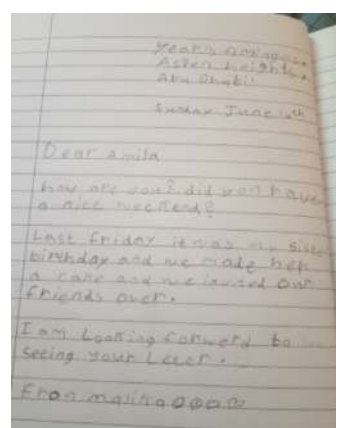 Year 4
Aspen Heights
Abu Dhabi
Sunday June
Dear Amila
how are you? did you have
a nice weekend?
Last Friday it was my sis
birthday and we made her
a cake and we invited our
friends over.
I am Looking forward to
seeing your Letter.
From malika